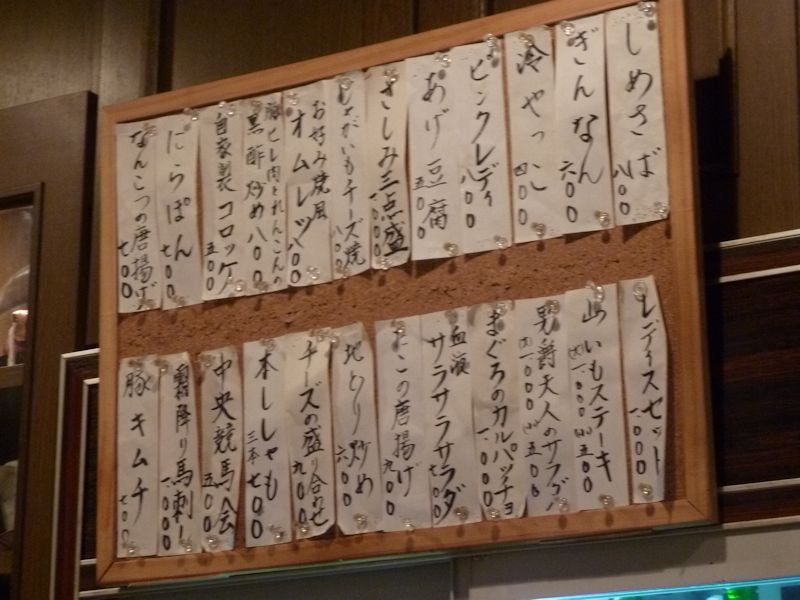 しめさば 八〇〇
ぎんなん 六〇〇
冷やっこ 四〇〇
ピンクレディ 八〇〇
あげ豆腐 五〇〇
さしみ三点盛 一、〇〇〇
じゃがいもチーズ焼 八〇〇
お好み焼風
オムレツ 八〇〇
豚ヒレ肉とれんこんの
黒酢炒め 八〇〇
自家製コロッケ 五〇〇
たらぽん 七〇〇
なんこつの唐揚げ 七〇〇
レディスセット 一、〇〇〇
山いもステーキ (大)一、〇〇〇 (小)五〇〇
男爵夫人のサラダ (大)一、〇〇〇 (小)五〇〇
まぐろのカルパッチョ 一、〇〇〇
血液
サラサラサラダ 七〇〇
たこの唐揚げ 九〇〇
地とり炒め 六〇〇
チーズの盛り合わせ 九〇〇
本ししゃも 三本 七〇〇
中央競馬会 五〇〇
霜降り馬刺し 一、〇〇〇
豚キムチ 七〇〇